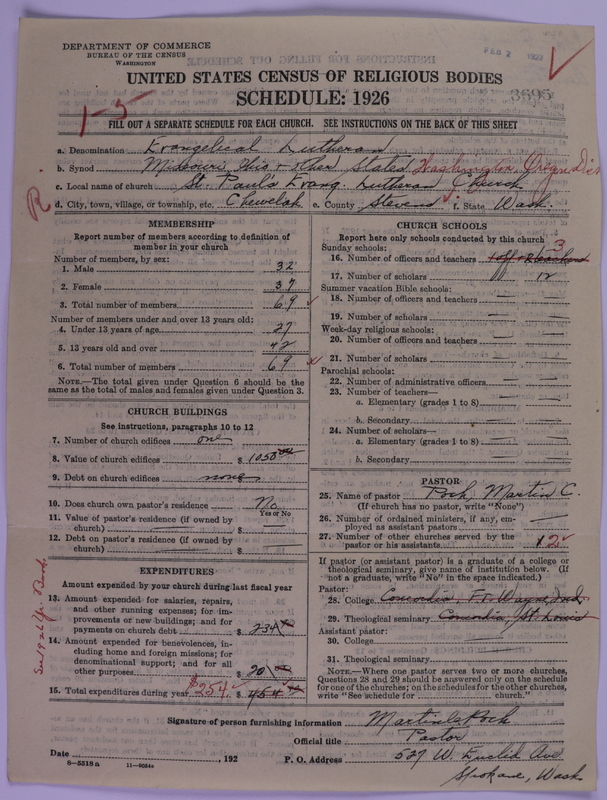 DEPARTMENT OF COMMERCE
BUREAU OF THE CENSUS
WASHINGTON
FEB 2 1927
UNITED STATES CENSUS OF RELIGIOUS BODIES
SCHEDULE: 1926
3695
1-5
FILL OUT A SEPARATE SCHEDULE FOR EACH CHURCH. SEE INSTRUCTIONS ON THE BACK OF THIS SHEET
a. Denomination Evangelical Lutheran
b. Synod Missouri, Ohio & other States Washington Oregon Dist
c. Local name of church St. Paul's Evang. Lutheran Church
R.
d. City, town, village, or township, etc. Chewelah e. County Stevens f. State Wash.
MEMBERSHIP
Report number of members according to definition of member in your church
Number of members, by sex:
1. Male 32
2. Female 37
3. Total number of members 69
Number of members under and over 13 years old:
4. Under 13 years of age 27
5. 13 years old and over 42
6. Total number of members 69
NOTE.—The total given under Question 6 should be the same as the total of males and females given under Question 3.
CHURCH BUILDINGS
See instructions, paragraphs 10 to 12
7. Number of church edifices one
8. Value of church edifices $ 1050.00
9. Debt on church edifices none $
10. Does church own pastor's residence No
Yes or No
11. Value of pastor's residence (if owned by church) $
12. Debt on pastor's residence (if owned by church) $
EXPENDITURES
Amount expended by your church during last fiscal year
13. Amount expended for salaries, repairs, and other running expenses; for improvements or new buildings; and for payments on church debt $ 234
14. Amount expended for benevolences, including home and foreign missions; for denominational support; and for all other purposes $ 20
15. Total expenditures during year $254. $ 454
CHURCH SCHOOLS
Report here only schools conducted by this church
Sunday schools: 3
16. Number of officers and teachers 1 off + 2 teachers
17. Number of scholars 12
Summer vacation Bible schools:
18. Number of officers and teachers
19. Number of scholars
Week-day religious schools:
20. Number of officers and teachers
21. Number of scholars
Parochial schools:
22. Number of administrative officers
23. Number of teachers—
a. Elementary (grades 1 to 8)
b. Secondary
24. Number of scholars—
a. Elementary (grades 1 to 8)
b. Secondary
PASTOR
25. Name of pastor Koch, Martin C.
(If church has no pastor, write "None")
26. Number of ordained ministers, if any, employed as assistant pastors
27. Number of other churches served by the pastor or his assistants 2
If pastor (or assistant pastor) is a graduate of a college or theological seminary, give name of institution below. (If not a graduate, write "No" in the space indicated.)
Pastor:
28. College Concordia, Ft. Wayne, Ind.
29. Theological seminary Concordia, St. Louis
Assistant pastor:
30. College
31. Theological seminary
NOTE.—Where one pastor serves two or more churches, Questions 28 and 29 should be answered only on the schedule for one of the churches; on the schedules for the other churches, write "See schedule for church."
Signature of person furnishing information Martin C. Koch
Official title Pastor
Date , 192 P. O. Address 527 W. Euclid Ave
Spokane, Wash
8-5518a 11-9054a